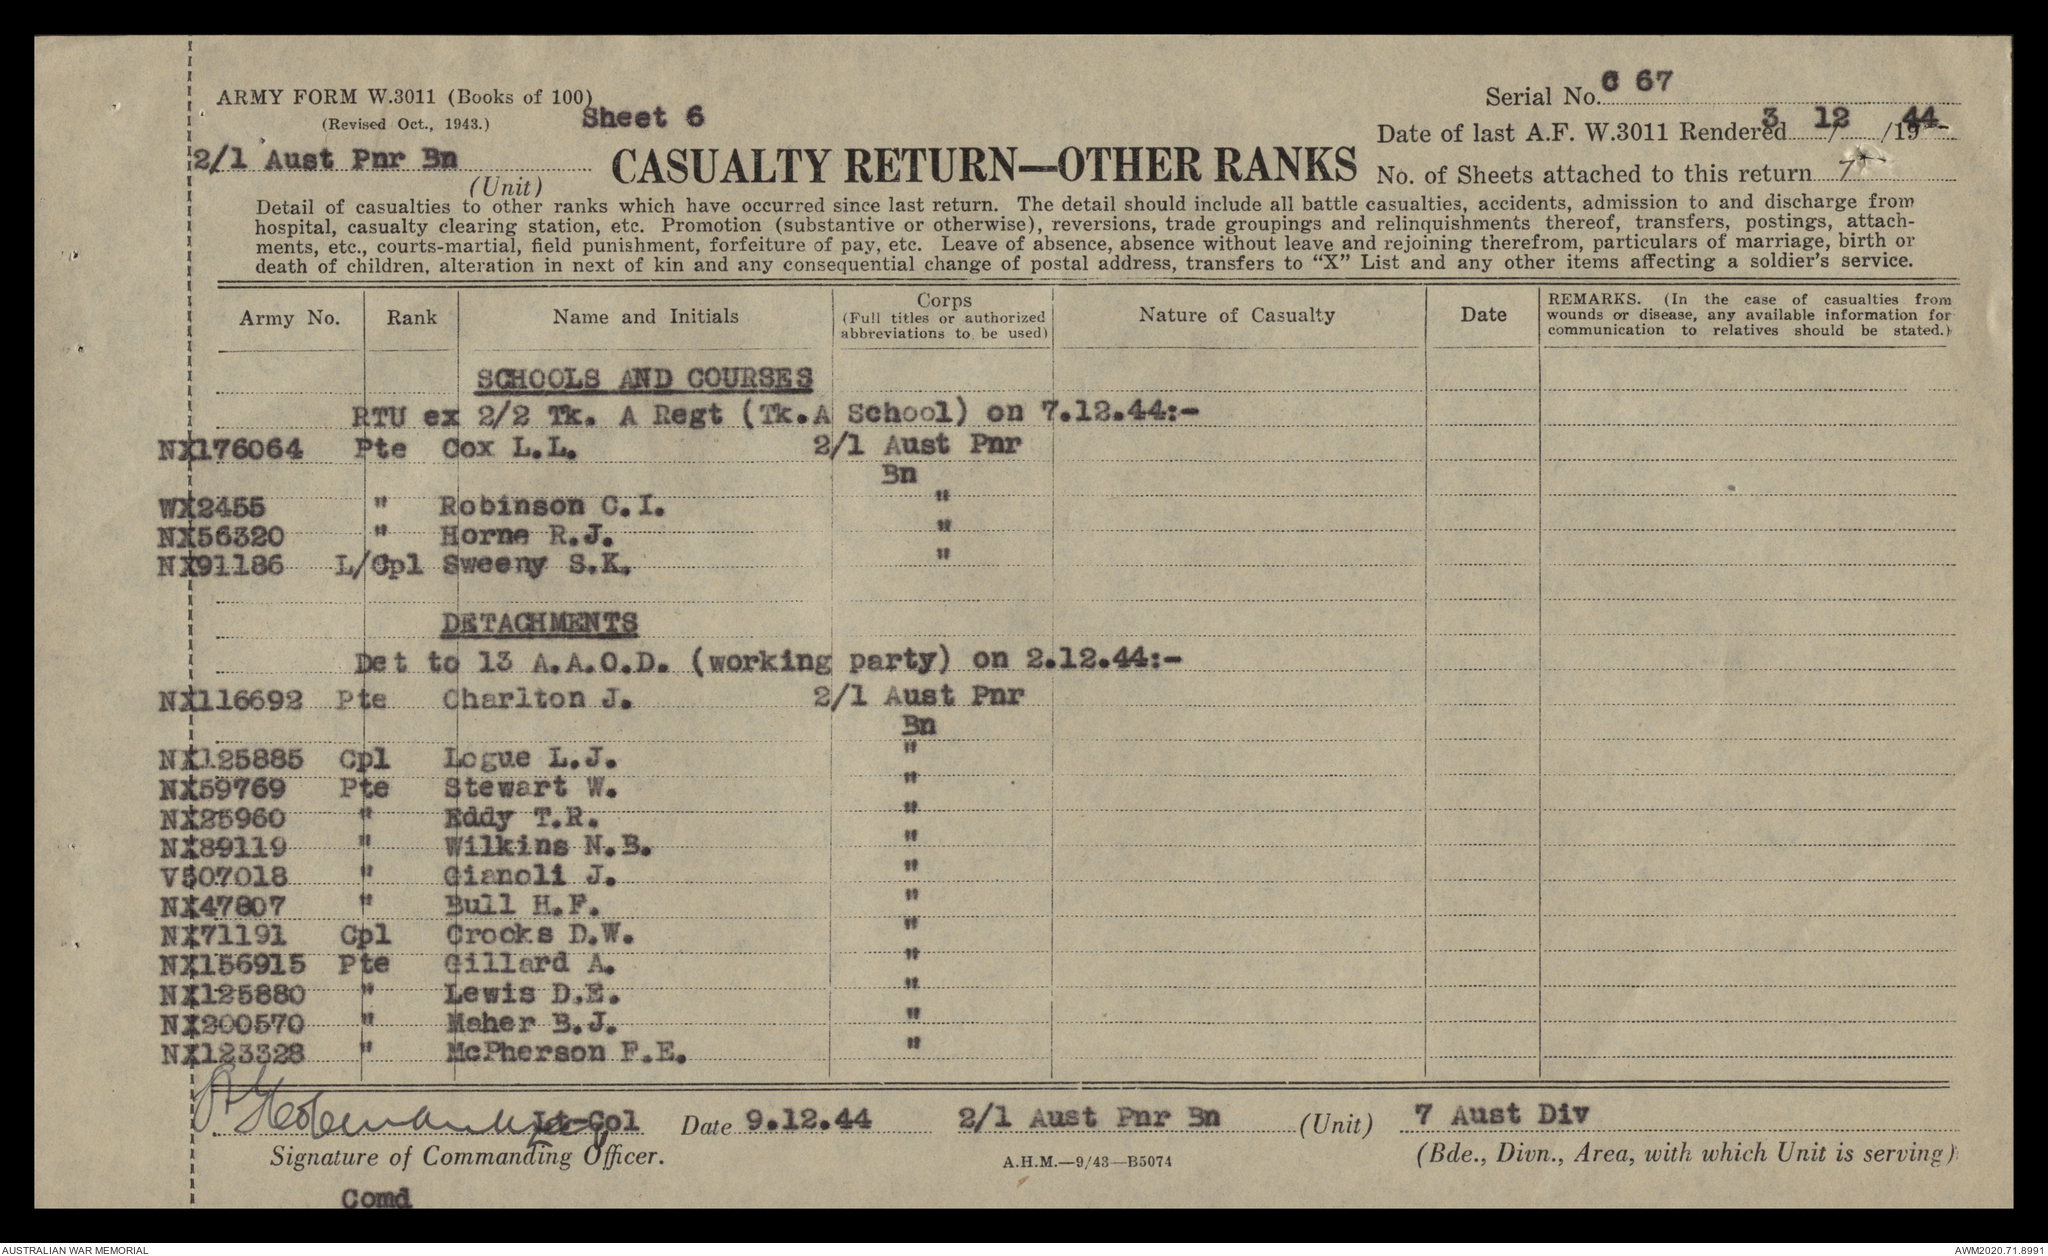 ARMY FORM W.3011 (Books of 100)
(Revised Oct., 1943.)
Sheet 6
Serial No. C 67
Date of last A.F. W.3011 Rendered 3/12/1944
2/1 Aust Pnr Bn
(Unit)
CASUALTY RETURN—OTHER RANKS
No. of Sheets attached to this return 7
Detail of casualties to other ranks which have occurred since last return. The detail should include all battle casualties, accidents, admission to and discharge from
hospital, casualty clearing station, etc. Promotion (substantive or otherwise), reversions, trade groupings and relinquishments thereof, transfers, postings, attach-
ments, etc., courts-martial, field punishment, forfeiture of pay, etc. Leave of absence, absence without leave and rejoining therefrom, particulars of marriage, birth or
death of children, alteration in next of kin and any consequential change of postal address, transfers to "X" List and any other items affecting a soldier's service.
Army No. Rank Name and Initials Corps Nature of Casualty Date REMARKS. (In the case of casualties from
(Full titles or authorized wounds or disease, any available information for
abbreviations to be used) communication to relatives should be stated.)
SCHOOLS AND COURSES
RTU ex 2/2 Tk. A Regt (Tk.A School) on 7.12.44:-
NX176064 Pte Cox L.L. 2/1 Aust Pnr
Bn
WX2455 " Robinson C.I. "
NX56320 " Horne R.J. "
NX91186 L/Cpl Sweeny S.K. "
DETACHMENTS
Det to 13 A.A.O.D. (working party) on 2.12.44:-
NX116692 Pte Charlton J. 2/1 Aust Pnr
Bn
NX125885 Cpl Logue L.J. "
NX59769 Pte Stewart W. "
NX25960 " Eddy T.R. "
NX89119 " Wilkins N.B. "
V507018 " Gianoli J. "
NX47807 " Bull H.F. "
NX71191 Cpl Crooks D.W. "
NX156915 Pte Gillard A. "
NX125880 " Lewis D.E. "
NX200570 " Maher B.J. "
NX123328 " McPherson F.E. "
Lt-Col Date 9.12.44 2/1 Aust Pnr Bn (Unit) 7 Aust Div
Signature of Commanding Officer. A.H.M.—9/43—B5074 (Bde., Divn., Area, with which Unit is serving)
Comd
AUSTRALIAN WAR MEMORIAL
AWM2020.71.8991